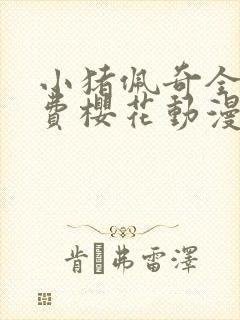 小猪佩奇全
費櫻花動漫
肯 弗雷澤